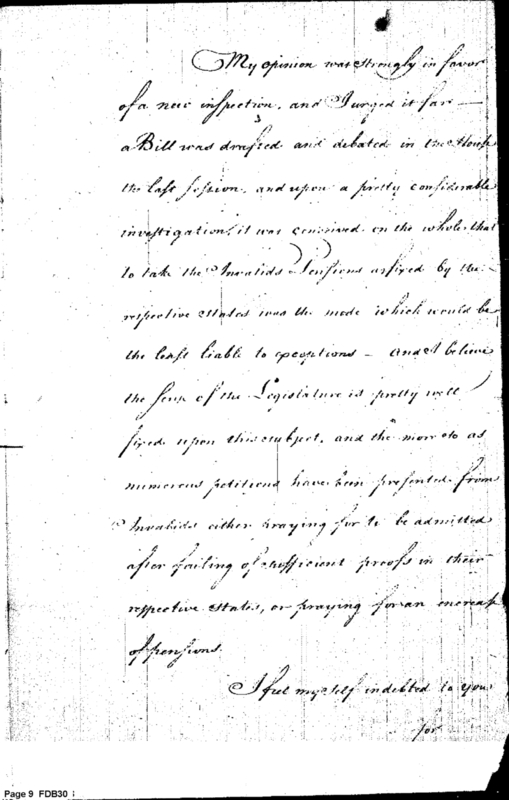 My opinion was strongly in favor
of a new inspection, and I urged it far —
a Bill was drafted and debated in the House
the last session, and upon a pretty considerable
investigation, it was conceived on the whole, that
to take the Invalids Pensions as fixed by the
respective States was the mode which would be
the least liable to exceptions — And I believe
the sense of the Legislature is pretty well
fixed upon this subject, and the more so as
numerous petitions have been presented from
Invalids either praying for to be admitted
after failing of sufficient proofs in their
respective States, or praying for an encrease
of pensions.
I feel myself indebted to you
for
Page 9 FDB30